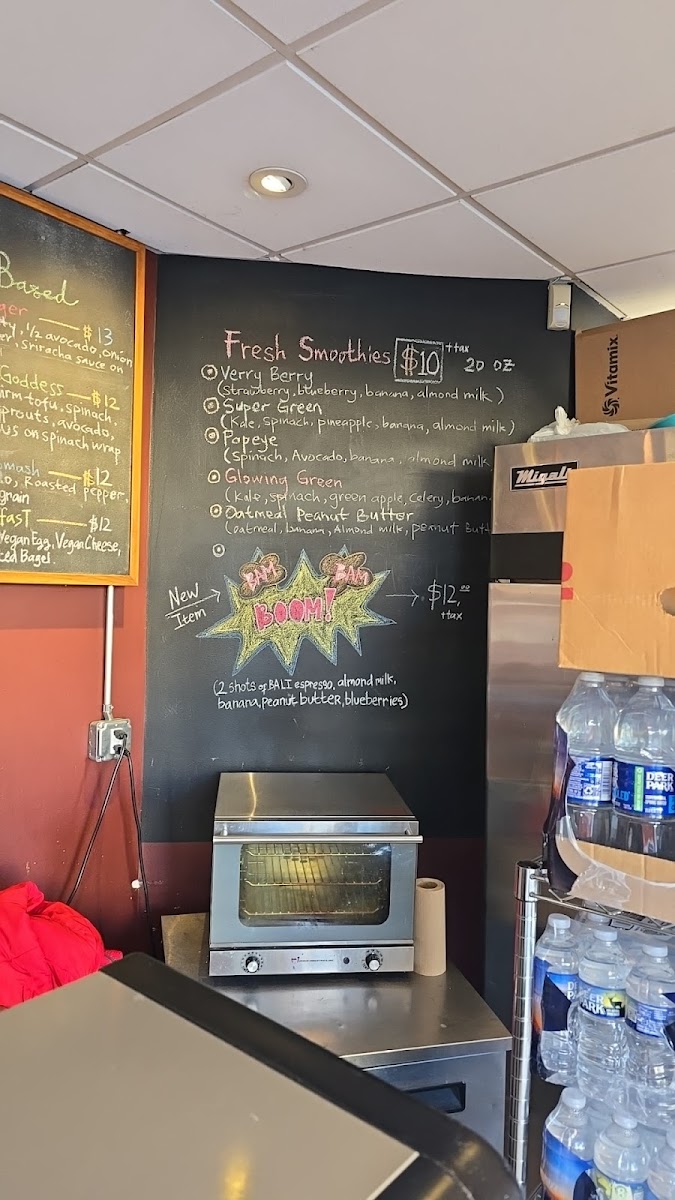 Based
ger — $13
ty, 1/2 avocado, onion
sriracha sauce on
Goddess — $12
arm-tofu, spinach,
sprouts, avocado,
us on spinach wrap
mash — $12
o, Roasted pepper,
grain
fasT — $12
Vegan Egg, Vegan Cheese,
ted Bagel
Fresh Smoothies $10 +tax 20 oz
Verry Berry
(strawberry, blueberry, banana, almond milk)
Super Green
(Kale, spinach, pineapple, banana, almond milk)
Popeye
(Spinach, Avocado, banana, almond milk
Glowing Green
(Kale, spinach, green apple, celery, banan
Oatmeal Peanut Butter
(oatmeal, banana, Almond milk, peanut butt
New
Item
BAM BAM
BOOM!
$12.00
+tax
(2 shots of BALI espresso, almond milk,
banana, peanut butter, blueberries)
Vitamix
Migali
DEER
PARK
DEER
PARK